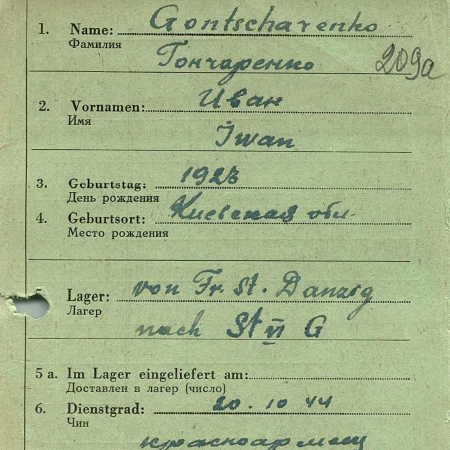 1. Name: Gontscharenko
Фамилия Гончаренко 209а
2. Vornamen: Иван
Имя Iwan
3. Geburtstag: 1923
День рождения
4. Geburtsort: Киевская обл.
Место рождения
Lager: von Fr. St. Danzig
Лагер nach St VI G
5 a. Im Lager eingeliefert am:
Доставлен в лагер (число)
6. Dienstgrad: 20. 10 44
Чин красноармеец